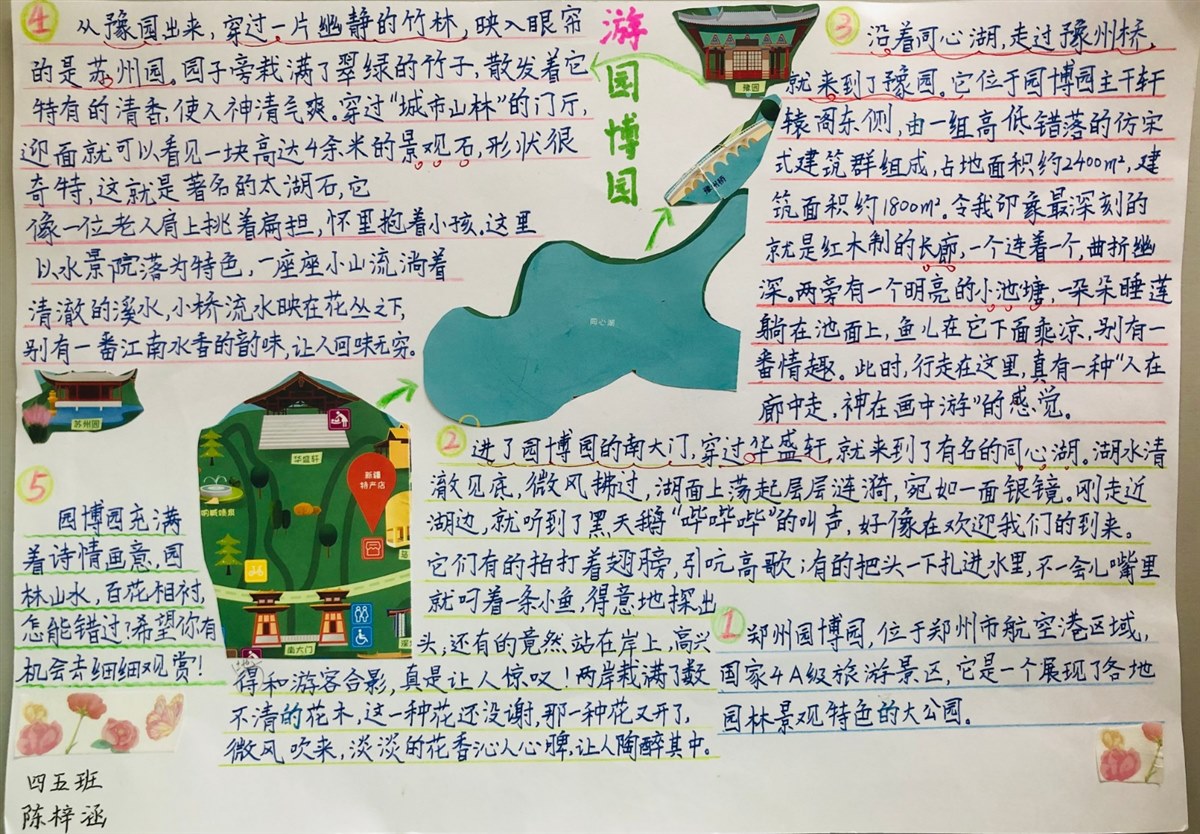 游园博园
① 郑州园博园，位于郑州市航空港区域，
国家4A级旅游景区，它是一个展现了各地
园林景观特色的大公园。
② 进了园博园的南大门，穿过华盛轩，就来到了有名的同心湖。湖水清
澈见底，微风拂过，湖面上荡起层层涟漪，宛如一面银镜。刚走近
湖边，就听到了黑天鹅“哔哔哔”的叫声，好像在欢迎我们的到来。
它们有的拍打着翅膀，引吭高歌；有的把头一下扎进水里，不一会儿嘴里
就叼着一条小鱼，得意地探出
头；还有的竟然站在岸上，高兴
得和游客合影，真是让人惊叹！两岸栽满了数
不清的花木，这一种花还没谢，那一种花又开了，
微风吹来，淡淡的花香沁人心脾，让人陶醉其中。
③ 沿着同心湖，走过豫州桥，
就来到了豫园。它位于园博园主干轩
辕阁东侧，由一组高低错落的仿宋
式建筑群组成，占地面积约2400m²，建
筑面积约1800m²。令我印象最深刻的
就是红木制的长廊，一个连着一个，曲折幽
深。两旁有一个明亮的小池塘，一朵朵睡莲
躺在池面上，鱼儿在它下面乘凉，别有一
番情趣。此时，行走在这里，真有一种“人在
廊中走，神在画中游”的感觉。
④ 从豫园出来，穿过一片幽静的竹林，映入眼帘
的是苏州园。园子旁栽满了翠绿的竹子，散发着它
特有的清香，使人神清气爽。穿过“城市山林”的门厅，
迎面就可以看见一块高达4余米的景观石，形状很
奇特，这就是著名的太湖石，它
像一位老人肩上挑着扁担，怀里抱着小孩。这里
以水景院落为特色，一座座小山流淌着
清澈的溪水，小桥流水映在花丛之下，
别有一番江南水香的韵味，让人回味无穷。
⑤ 园博园充满
着诗情画意，园
林山水，百花相衬，
怎能错过？希望你有
机会去细细观赏！
豫园
豫州桥
同心湖
苏州园
华盛轩
新疆
特产店
呐喊喷泉
南大门
四五班
陈梓涵